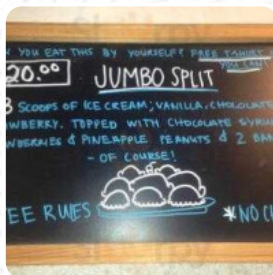 YOU EAT THIS BY YOURSELF? FREE TSHIRT
YOU CAN!
20.00
JUMBO SPLIT
SCOOPS OF ICE CREAM; VANILLA, CHOCOLATE
TOPPED WITH CHOCOLATE SYRUP
& PINEAPPLE PEANUTS & 2
- OF COURSE!
RULES
*NO